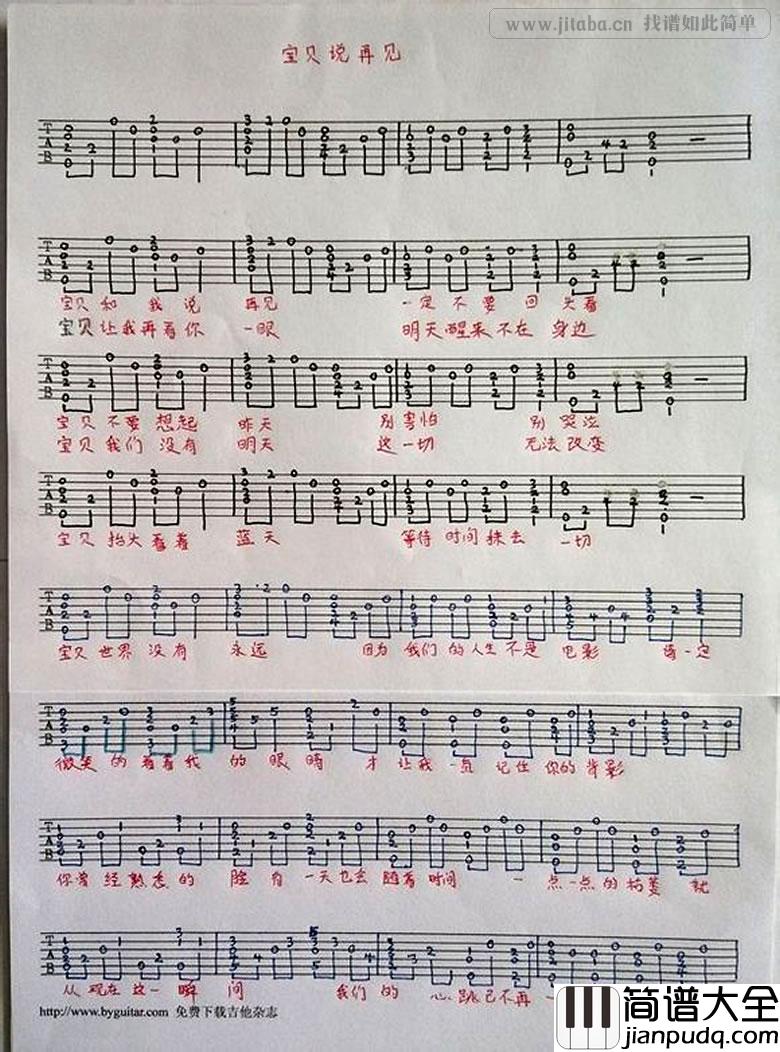 www.jitaba.cn 找谱如此简单
宝贝说再见
宝贝和我说 再见 一定不要回头看
宝贝让我再看你一眼 明天醒来不在身边
宝贝不要想起 昨天 别害怕 别哭泣
宝贝我们没有 明天 这一切 无法改变
宝贝抬头看着 蓝天 等待时间抹去 一切
宝贝世界没有 永远 因为我们的人生不是 电影 请一定
微笑的看着我 的眼睛 才让我一直记住你的背影
你曾经熟悉的 脸有一天也会随着时间 一点一点的枯萎 就
从现在这一瞬间 我们的 心跳已不再一
http://www.byguitar.com 免费下载吉他杂志
简谱大全
jianpudq.com